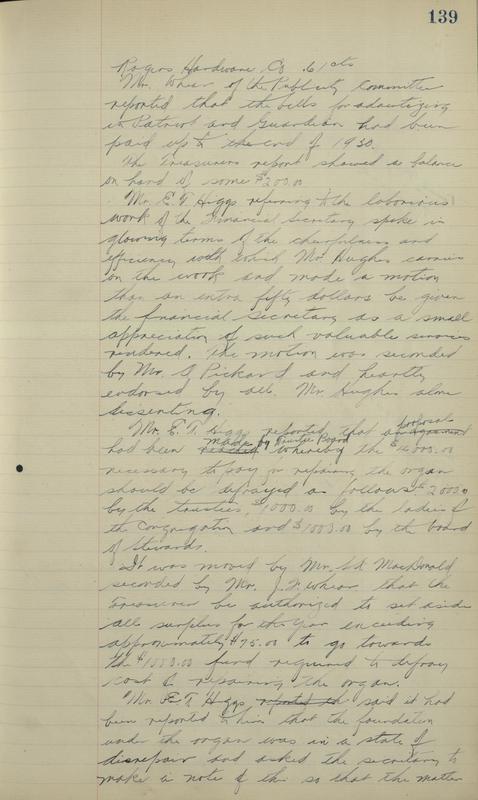 139
Rogers Hardware Co .61 cts
Mr. Whear of the Publicity Committee
reported that the bills for advertizing
in Patriot and Guardian had been
paid up to the end of 1930.
The Treasurers report showed a balance
on hand of some $200.00
Mr. E.T. Higgs referring to the laborious
work of the Financial Secretary spoke in
glowing terms of the cheerfulness and
efficiency with which Mr Hughes carries
on the work and made a motion
than an extra fifty dollars be given
the financial Secretary as a small
appreciation of such valuable services
rendered. The motion was seconded
by Mr. G Pickard and heartly
endorsed by all Mr Hughes alone
dissenting.
Mr. E.T. Higgs reported that a proposal
had been made by Trustee Board whereby the $4000.00
necessary to pay in repairing the organ
should be defrayed as follows $2000.00
by the trustees, $1000.00 by the ladies of
the Congregation and $1000.00 by the board
of Stewards.
It was moved by Mr. MacDonald
seconded by Mr. J.F. Whear that the
Treasurer be authorized to set aside
all surplus for the year exceeding
approximately $75.00 to go towards
the $1000.00 fund required to defray
cost of repairing the organ.
Mr E.T. Higgs reported th said it had
been reported to him that the foundation
under the organ was in a state of
disrepair and asked the secretary to
make a note of this so that the matter